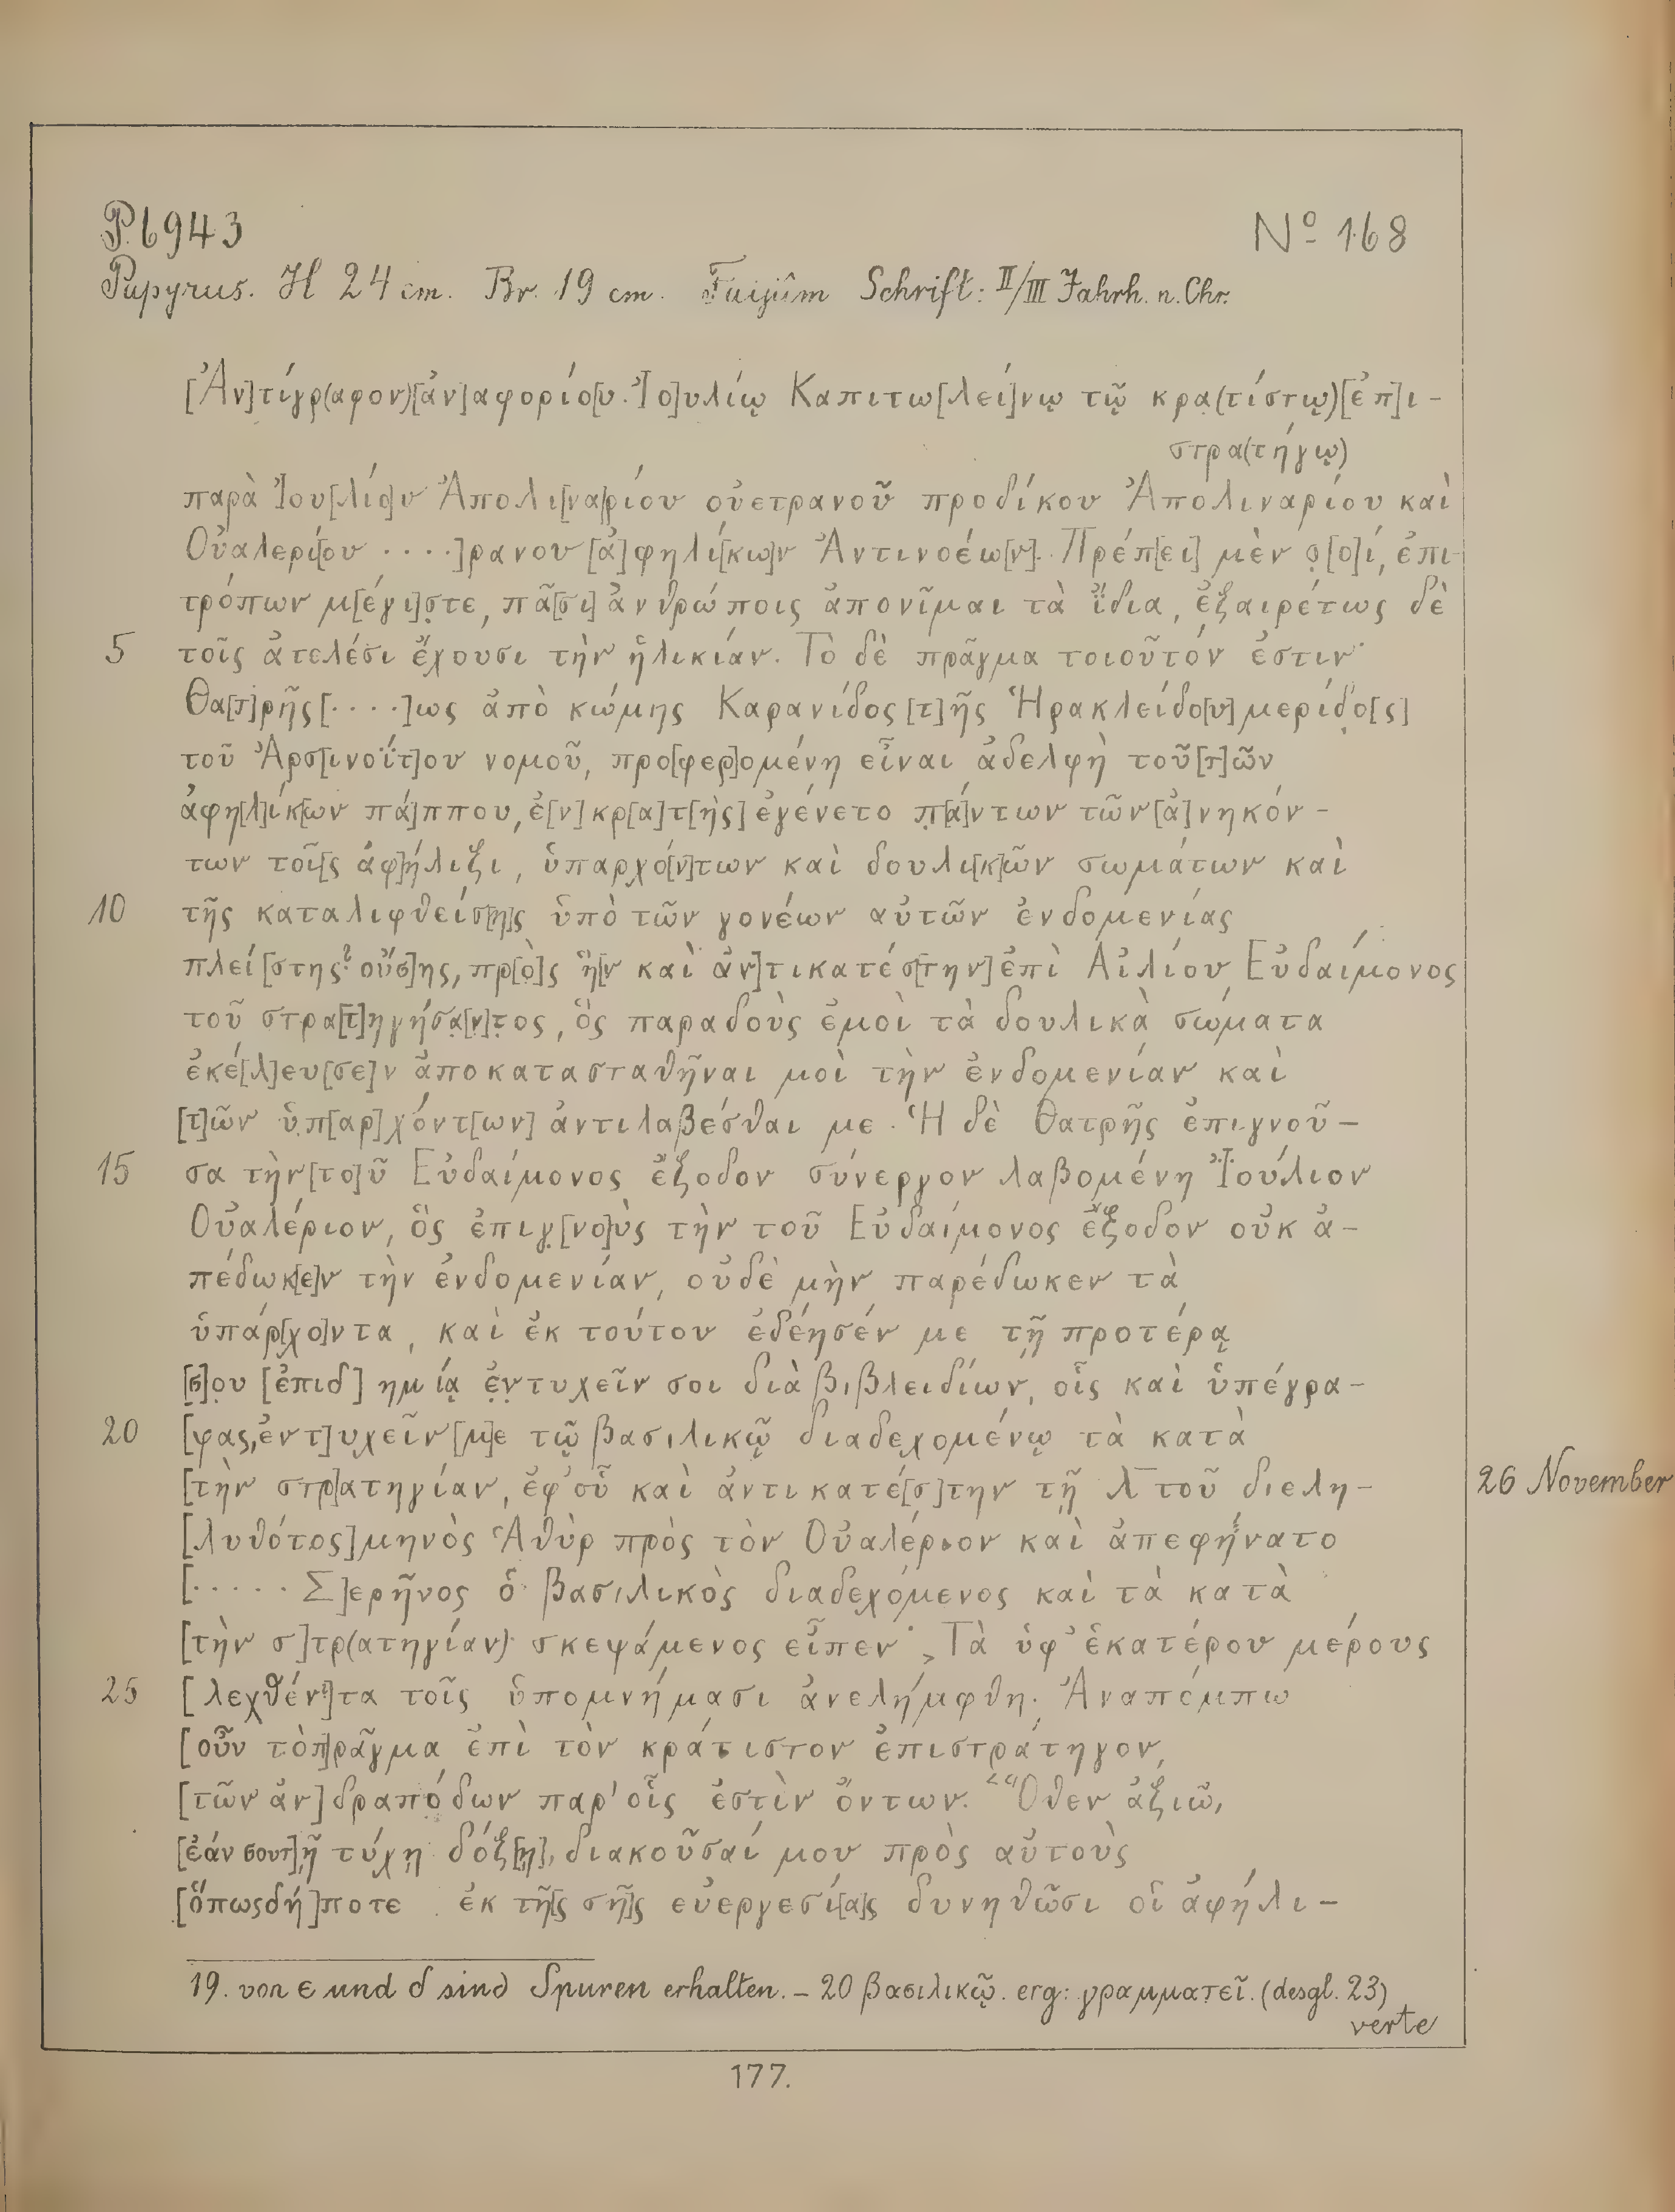 P.6943 Nº 168
Papyrus. H 24 cm. Br. 19 cm. Faijûm Schrift: II/III Jahrh. n. Chr.
[Ἀν]τίγρ(αφον)[ἀν]αφορίο[υ. Ἰο]υλίῳ Καπιτω[λεί]νῳ τῷ κρα(τίστῳ)[ἐπ]ι-
στρα(τήγῳ)
παρὰ Ἰου[λίο]υ Ἀπολι[να]ρίου οὐετρανοῦ προδίκου Ἀπολιναρίου καὶ
Οὐαλερί[ου ····]ρανου [ἀ]φηλί[κω]ν Ἀντινοέω[ν]. Πρέπ[ει] μὲν σ[ο]ί, ἐπι
τρόπων μ[έγι]στε, πᾶ[σι] ἀνθρώποις ἀπονῖμαι τὰ ἴδια, ἐξαιρέτως δὲ
5 τοῖς ἀτελέσι ἔχουσι τὴν ἡλικίαν. Τὸ δὲ πρᾶγμα τοιοῦτόν ἐστιν·
Θα[τ]ρῆς [····]ως ἀπὸ κώμης Καρανίδος [τ]ῆς Ἡρακλείδο[υ] μερίδο[ς]
τοῦ Ἀρσ[ινοΐτ]ου νομοῦ, προ[φερ]ομένη εἶναι ἀδελφὴ τοῦ [τ]ῶν
ἀφη[λ]ίκ[ων πά]ππου, ἐ[ν]κρ[α]τ[ὴς] ἐγένετο π[ά]ντων τῶν [ἀ]νηκόν-
των τοῖ[ς ἀφ]ήλιξι, ὑπαρχό[ν]των καὶ δουλι[κ]ῶν σωμάτων καὶ
10 τῆς καταλιφθείσ[η]ς ὑπὸ τῶν γονέων αὐτῶν ἐνδομενίας
πλεί[στης? οὔσ]ης, πρ[ὸ]ς ἣ[ν καὶ ἀν]τικατέσ[την] ἐπὶ Αἰλίου Εὐδαίμονος
τοῦ στρα[τ]ηγήσα[ν]τος, ὃς παραδοὺς ἐμοὶ τὰ δουλικὰ σώματα
ἐκέ[λ]ευ[σε]ν ἀποκατασταθῆναι μοὶ τὴν ἐνδομενίαν καὶ
[τ]ῶν ὑπ[αρ]χόντ[ων] ἀντιλαβέσθαι με. Ἡ δὲ Θατρῆς ἐπιγνοῦ-
15 σα τὴν [το]ῦ Εὐδαίμονος ἔξοδον σύνεργον λαβομένη Ἰούλιον
Οὐαλέριον, ὃς ἐπιγ[νο]ὺς τὴν τοῦ Εὐδαίμονος ἔξοδον οὐκ ἀ-
πέδωκ[ε]ν τὴν ἐνδομενίαν, οὐδὲ μὴν παρέδωκεν τὰ
ὑπάρ[χο]ντα, καὶ ἐκ τούτου ἐδέησέν με τῇ προτέρᾳ
[σ]ου [ἐπιδ]ημίᾳ ἐντυχεῖν σοι διὰ βιβλειδίων, οἷς καὶ ὑπέγρα-
20 [ψας, ἐντ]υχεῖν [μ]ε τῷ βασιλικῷ διαδεχομένῳ τὰ κατὰ
[τὴν στρ]ατηγίαν, ἐφ' οὗ καὶ ἀντικατέ[σ]την τῇ λ̅ τοῦ διελη- 26 November
[λυθότος] μηνὸς Ἁθὺρ πρὸς τὸν Οὐαλέριον καὶ ἀπεφήνατο
[····· Σ]ερῆνος ὁ βασιλικὸς διαδεχόμενος καὶ τὰ κατὰ
[τὴν σ]τρ(ατηγίαν)· σκεψάμενος εἶπεν· „Τὰ ὑφ' ἑκατέρου μέρους
25 [λεχθέν]τα τοῖς ὑπομνήμασι ἀνελήμφθη. Ἀναπέμπω
[οὖν τὸ π]ρᾶγμα ἐπὶ τὸν κράτιστον ἐπιστράτηγον,
[τῶν ἀν]δραπόδων παρ' οἷς ἐστὶν ὄντων.“ Ὅθεν ἀξιῶ,
[ἐάν σου τ]ῇ τύχῃ δόξ[ῃ], διακοῦσαί μου πρὸς αὐτοὺς
[ὅπωςδή]ποτε ἐκ τῆ[ς σῆ]ς εὐεργεσί[α]ς δυνηθῶσι οἱ ἀφήλι-
19. von ε und δ sind Spuren erhalten. – 20 βασιλικῷ. erg: γραμματεῖ. (desgl. 23)
verte
177.